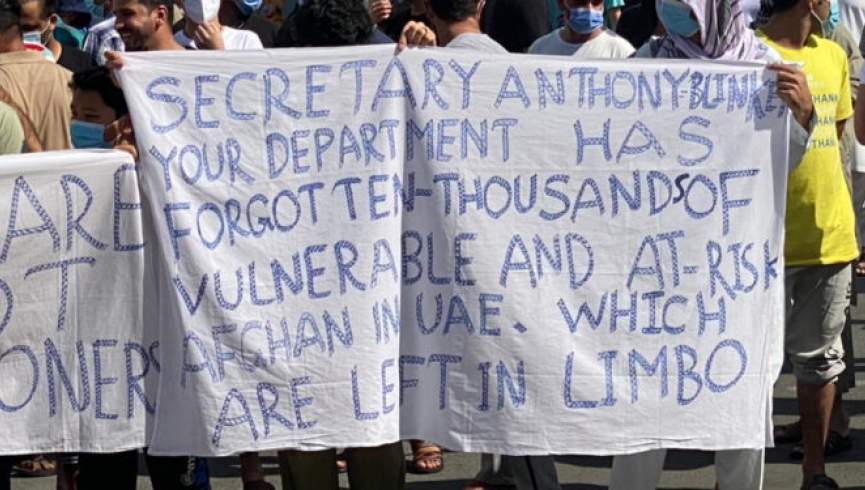 SECRETARY ANTHONY-BLINKEN
YOUR DEPARTMENT HAS
FORGOTTEN-THOUSANDS OF
VULNERABLE AND AT-RISK
AFGHAN IN UAE. WHICH
ARE LEFT IN LIMBO
ARE
ONERS
THANK
THANK